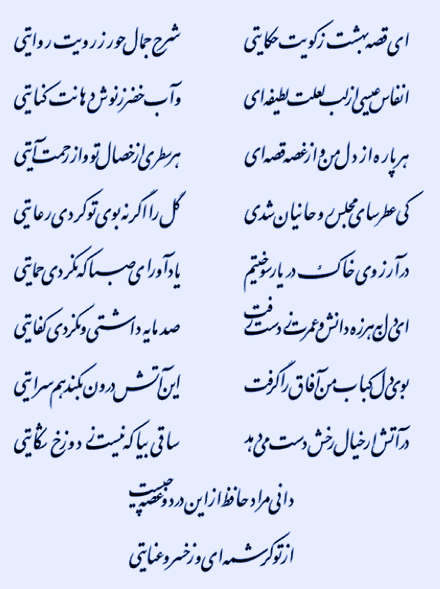 ای قصه بهشت ز کویت حکایتی شرح جمال حور ز رویت روایتی
انفاس عیسی از لب لعلت لطیفه‌ای وآب خضر ز نوش دهانت کنایتی
هر پاره از دل من و از غصه قصه‌ای هر سطری از خصال تو و از رحمت آیتی
کی عطرسای مجلس روحانیان شدی گل را اگر نه بوی تو کردی رعایتی
در آرزوی خاک در یار سوختیم یاد آور ای صبا که نکردی حمایتی
ای دل به هرزه دانش و عمرت ز دست رفت صد مایه داشتی و نکردی کفایتی
بوی دل کباب من آفاق را گرفت این آتش درون بکند هم سرایتی
در آتش ار خیال رخش دست می‌دهد ساقی بیا که نیست ز دوزخ شکایتی
دانی مراد حافظ از این درد و غصه چیست
از تو کرشمه‌ای و ز خسرو عنایتی